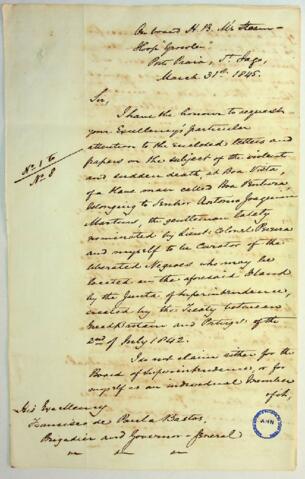 On board H. B. M's Steam-
Sloop "Growler"
Port Praia, St. Iago,
March 31st 1845.
Sir,
I have the honor to request
your Excellency's particular
attention to the enclosed letters and
papers on the subject of the violent
and sudden death, at Boa Vista,
of a Slave man called Boa Ventura
belonging to Senhor Antonio Joaquim
Martins, the gentleman lately
nominated by Lieut. Colonel Pereira
and myself to be Curator of the
liberated Negroes who may be
located in the aforesaid Island
by the Junta of Superintendence,
created by the Treaty between
Great Britain and Portugal of the
2nd of July 1842.
I do not claim either for the
Board of Superintendence, or for
myself as an individual Member
of it,
No 1 to
No 8
His Excellency
Francisco de Paula Bastos,
Brigadier and Governor-General
AHN